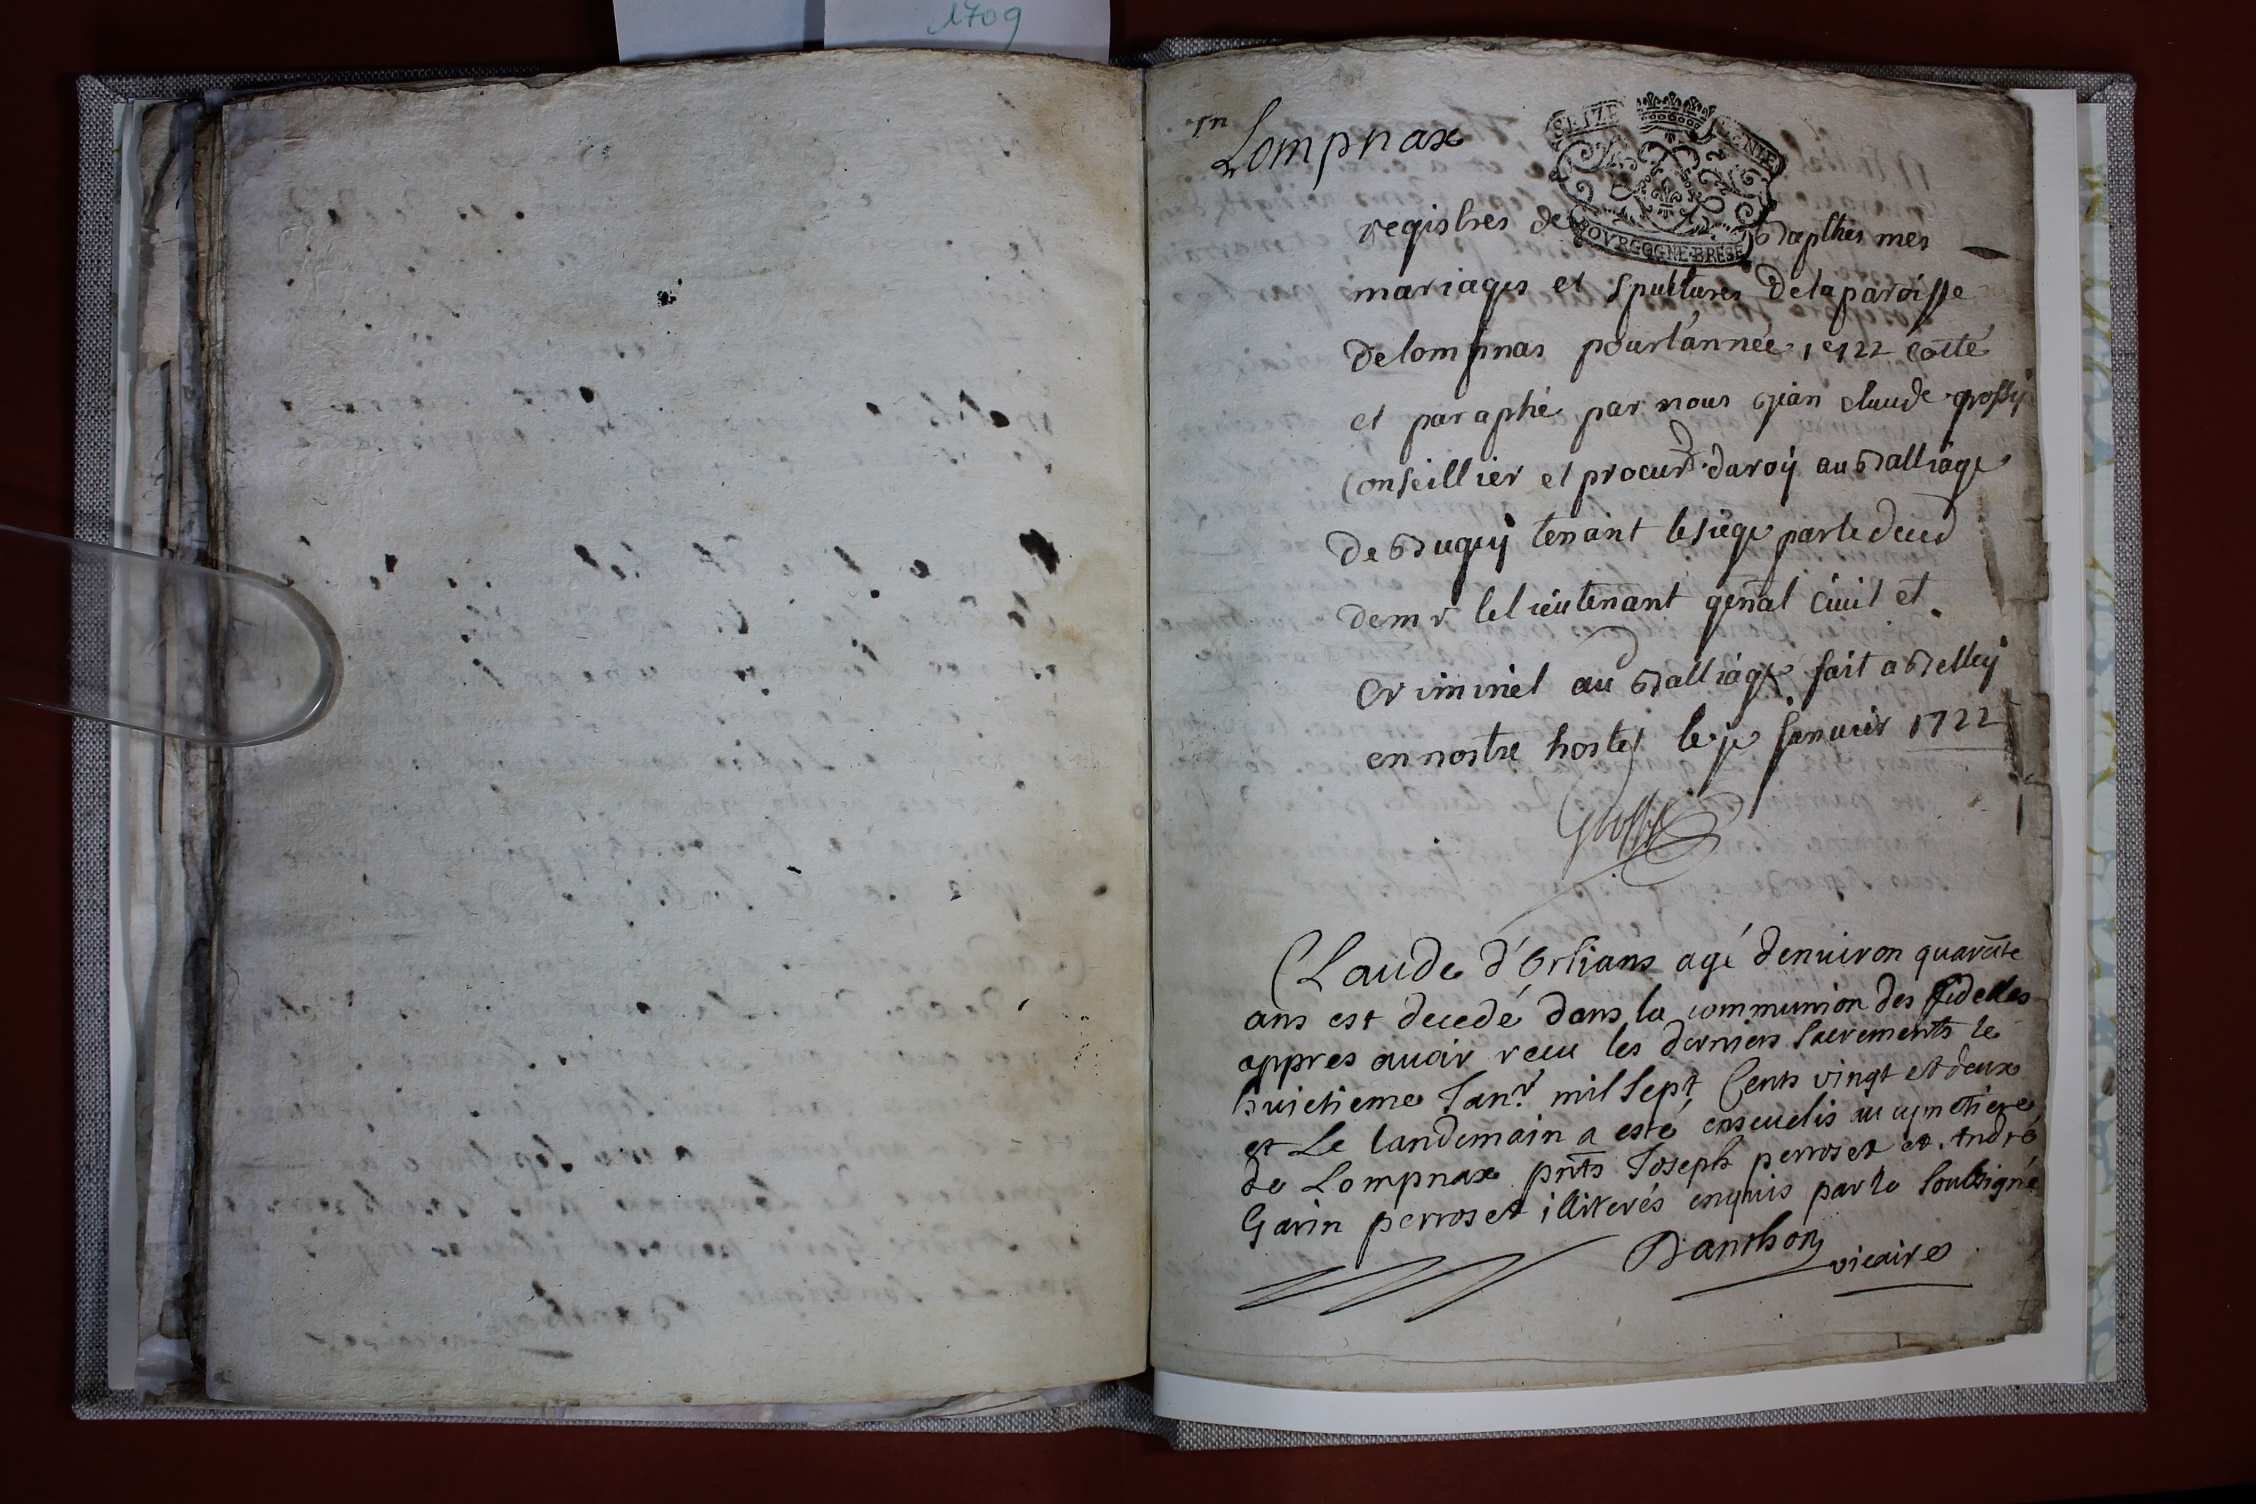 1709
Lompnax
SEIZE DENIE
BOVRGOGNE BRESE
registres de bapthes mes
mariages et spultures de la paroisse
de lompnas pour l'année 1722 cotté
et paraphé par nous jean claude grossy
Conseillier et procur du roy au balliage
de bugey tenant le siege par le deced
de mr le lieutenant gnal civil et
Criminel au balliage fait a belley
en nostre hostel le je janvier 1722
Grossy
Claude d'Orlians agé denuiron quarate
ans est decedé dans la communion des fidelles
appres auoir receu les derniers sacrements le
huictieme Janr mil sept Cents vingt et deux
et Le landemain a esté enseuelis au cymetiere
de Lompnax pnts Joseph perroset et André
Garin perroset illiterés enquis par le soubsigné
Danthon vicaire